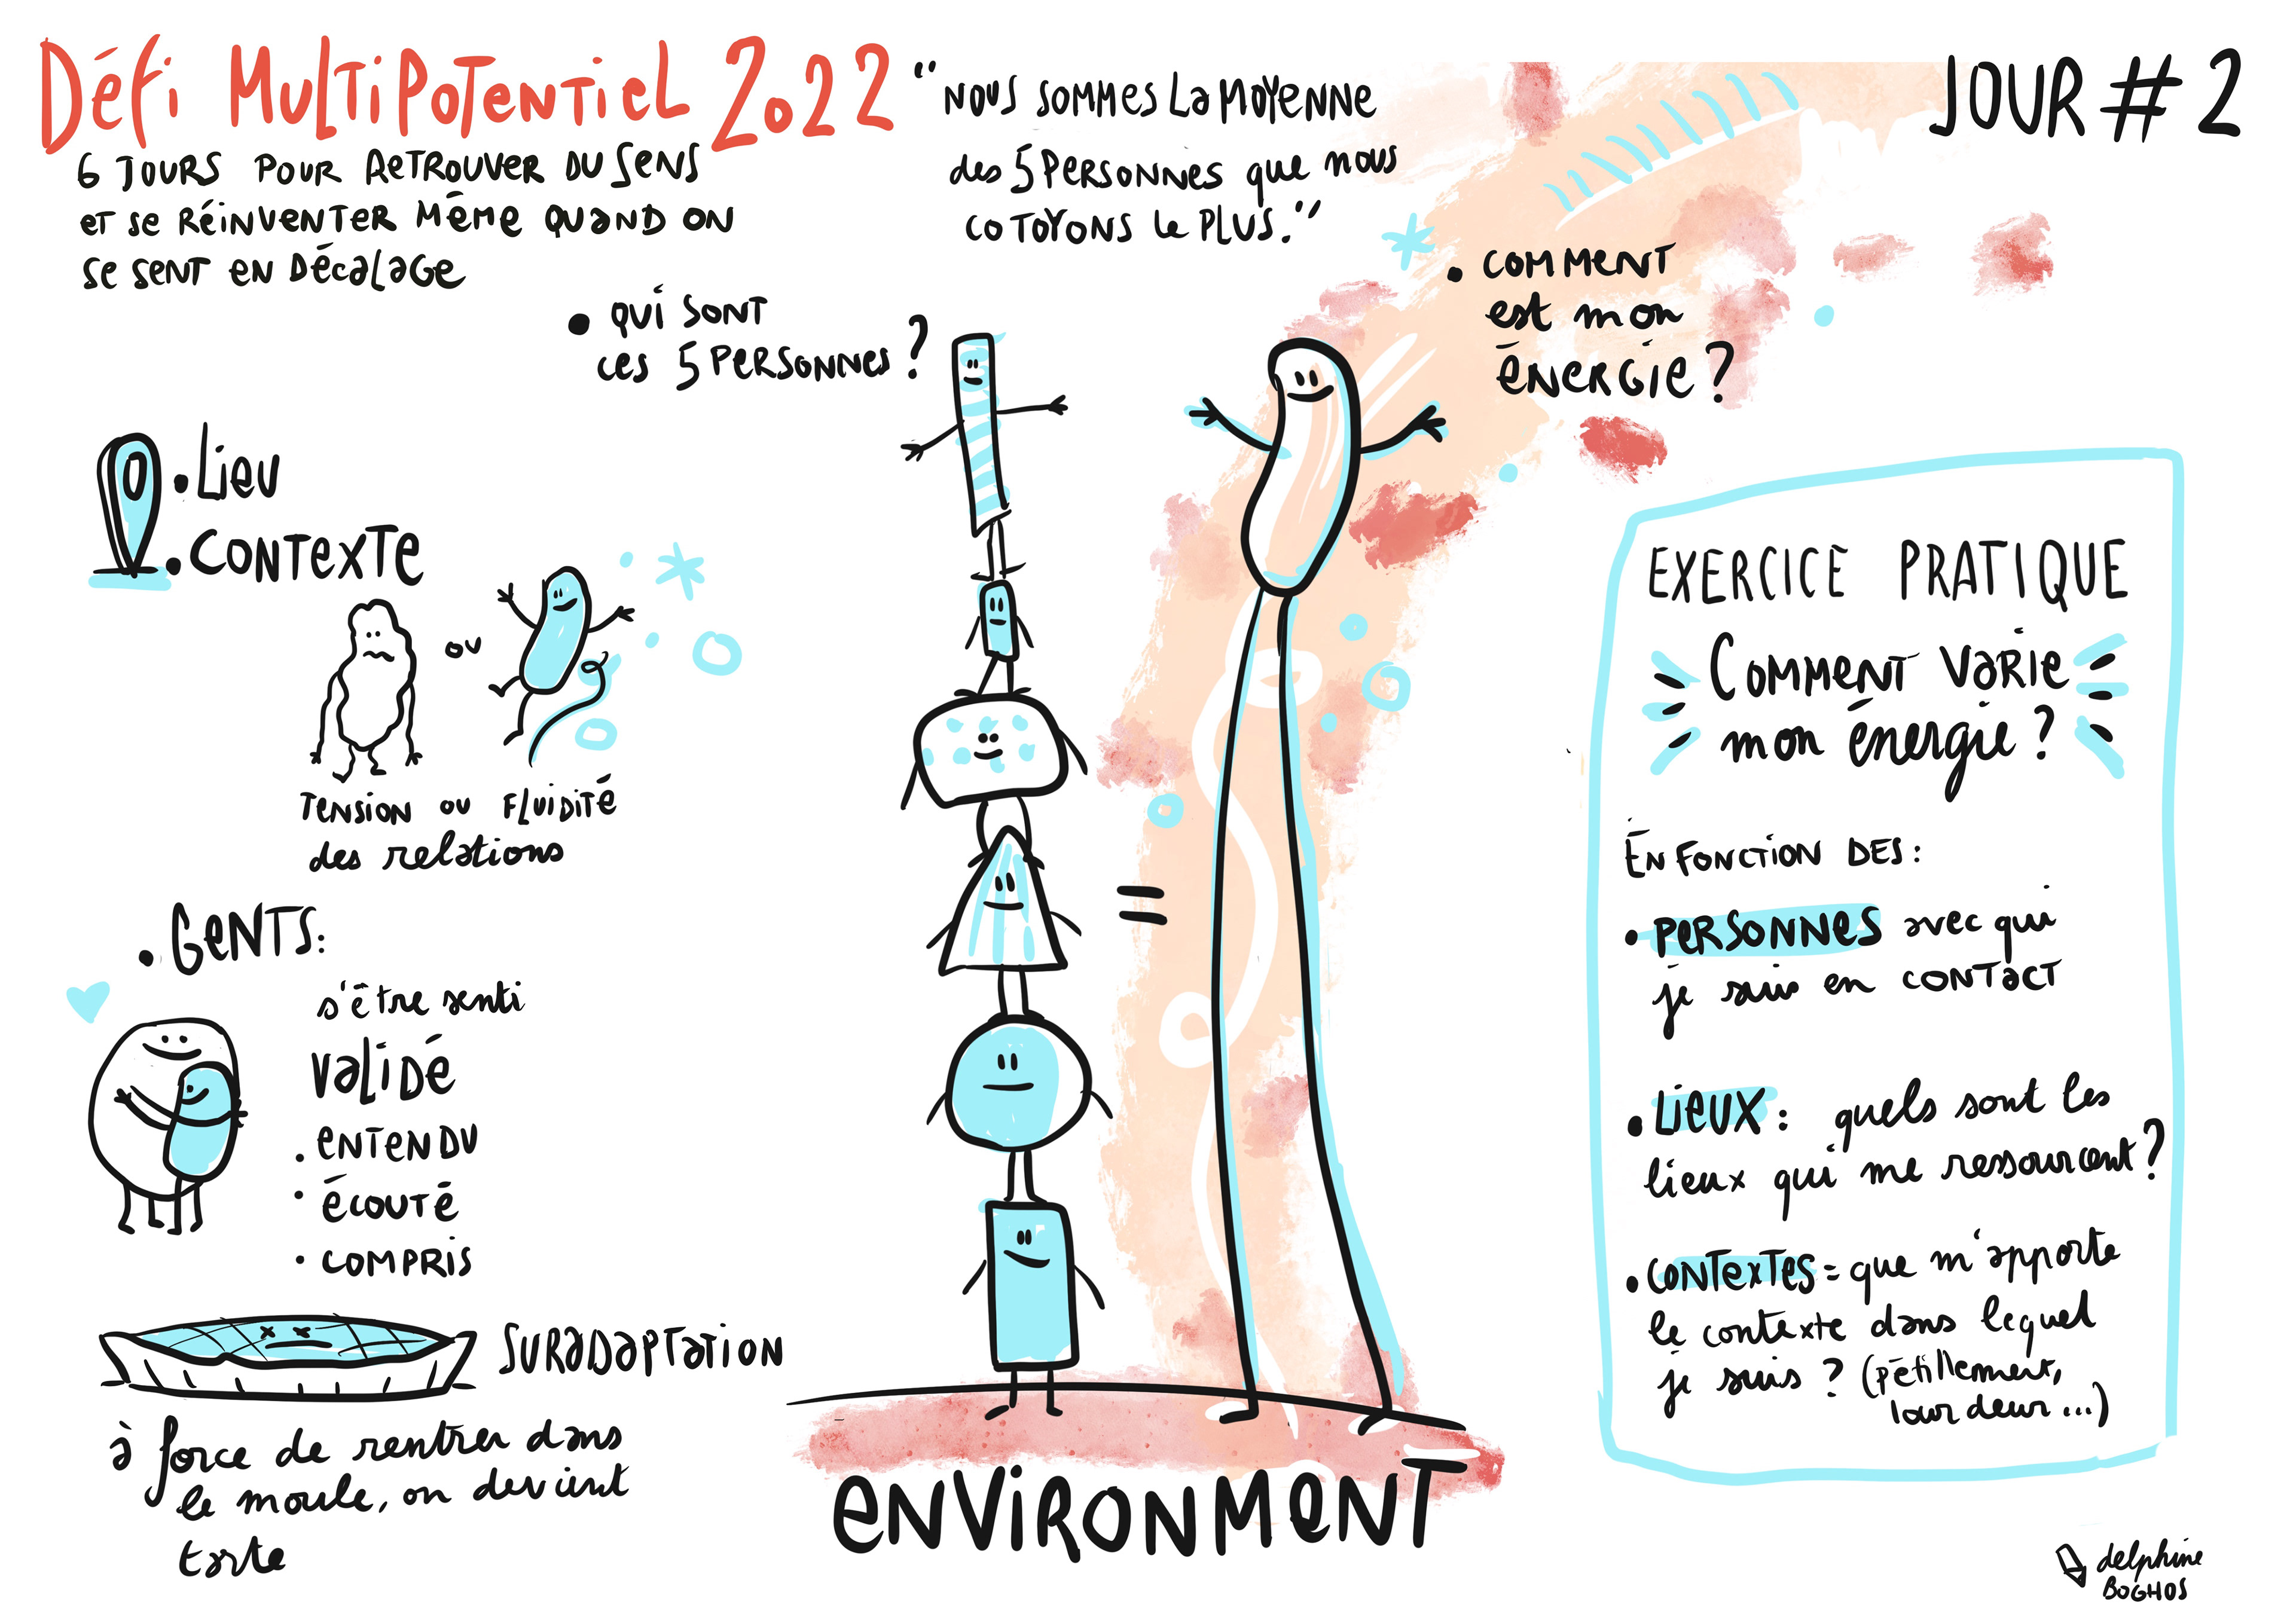 Défi Multipotentiel 2022
6 jours pour retrouver du sens
et se réinventer même quand on
se sent en décalage
"Nous sommes la moyenne
des 5 personnes que nous
cotoyons le plus."
JOUR #2
• Qui sont
ces 5 personnes ?
• Comment
est mon
énergie ?
• Lieu
• Contexte
ou
Tension ou fluidité
des relations
• Gents :
s'être senti
validé
• entendu
• écouté
• compris
Suradaptation
à force de rentrer dans
le moule, on devient
tarte
=
environment
EXERCICE PRATIQUE
Comment varie
mon énergie ?
En fonction des :
• Personnes avec qui
je suis en contact
• Lieux : quels sont les
lieux qui me ressourcent ?
• Contextes = que m'apporte
le contexte dans lequel
je suis ? (pétillement,
lourdeur...)
delphine
BOGHOS